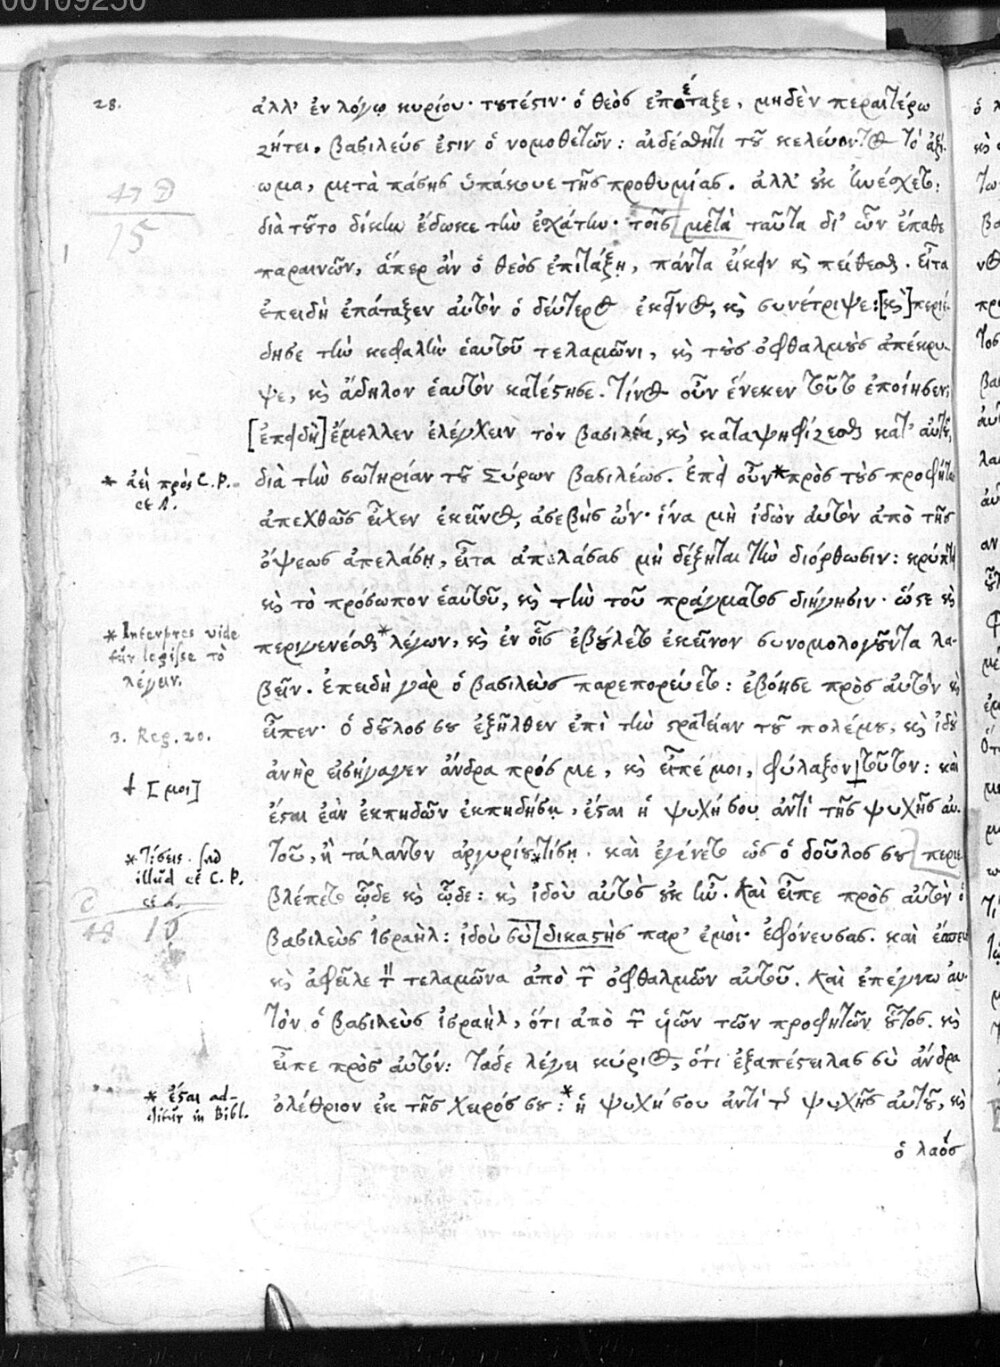 00109250
28.
ἀλλ' ἐν λόγῳ κυρίου· τουτέστιν· ὁ θεὸς ἐπέταξε, μηδὲν περαιτέρω
ζήτει. βασιλεύς ἐστιν ὁ νομοθετῶν: αἰδέσθητι τοῦ κελεύοντος τὸ ἀξί-
ωμα, μετὰ πάσης ὑπάκουε τῆς προθυμίας. ἀλλ' οὐκ ἠνέσχετο:
47 D
15
διὰ τοῦτο δίκην ἔδωκε τὴν ἐσχάτην· τοῖς [μετὰ ταῦτα δι' ὧν ἔπαθε
παραινῶν, ἅπερ ἂν ὁ θεὸς ἐπιτάξῃ, πάντα εἴκειν καὶ πείθεσθαι. εἶτα
ἐπειδὴ ἐπάταξεν αὐτὸν ὁ δεύτερος ἐκεῖνος, καὶ συνέτριψε: [καὶ] περιέ-
δησε τὴν κεφαλὴν ἑαυτοῦ τελαμῶνι, καὶ τοὺς ὀφθαλμοὺς ἀπέκρυ-
ψε, καὶ ἄδηλον ἑαυτὸν κατέστησε. τίνος οὖν ἕνεκεν τοῦτο ἐποίησεν;
[ἐπειδὴ] ἔμελλεν ἐλέγχειν τὸν βασιλέα, καὶ καταψηφίζεσθαι κατ' αὐτοῦ,
* ἀεὶ πρὸς C. P.
et A.
διὰ τὴν σωτηρίαν τοῦ Σύρων βασιλέως. ἐπεὶ οὖν * πρὸς τοὺς προφήτας
ἀπεχθῶς εἶχεν ἐκεῖνος, ἀσεβὴς ὤν· ἵνα μὴ ἰδὼν αὐτὸν ἀπὸ τῆς
ὄψεως ἀπελάσῃ, εἶτα ἀπελάσας μὴ δέξηται τὴν διόρθωσιν: κρύπτει
καὶ τὸ πρόσωπον ἑαυτοῦ, καὶ τὴν τοῦ πράγματος διήγησιν· ὥστε καὶ
* Interpres vide
tur legisse τὸ
λέγειν.
περιγενέσθαι * λέγων, καὶ ἐν οἷς ἐβούλετο ἐκεῖνον συνομολογοῦντα λα-
βεῖν. ἐπειδὴ γὰρ ὁ βασιλεὺς παρεπορεύετο: ἐβόησε πρὸς αὐτὸν καὶ
3. Reg. 20.
εἶπεν· ὁ δοῦλος σου ἐξῆλθεν ἐπὶ τὴν στρατείαν τοῦ πολέμου, καὶ ἰδοὺ
† [μοι]
ἀνὴρ εἰσήγαγεν ἄνδρα πρός με, καὶ εἶπέ μοι, φύλαξον † τοῦτον: καὶ
ἔσται ἐὰν ἐκπηδῶν ἐκπηδήσῃ, ἔσται ἡ ψυχή σου ἀντὶ τῆς ψυχῆς αὐ-
* τίσεις. sed
illud et C. P.
et A.
τοῦ, ἢ τάλαντον ἀργυρίου * τίσῃ. καὶ ἐγένετο ὡς ὁ δοῦλος σου [περιε-
C
48 15
βλέπετο ὧδε καὶ ὧδε: καὶ ἰδοὺ αὐτὸς οὐκ ἦν. Καὶ εἶπε πρὸς αὐτὸν ὁ
βασιλεὺς Ἰσραὴλ: ἰδοὺ σὺ [δικαστὴς παρ' ἐμοί· ἐφόνευσας. καὶ ἔσπευσε
καὶ ἀφεῖλε τὸν τελαμῶνα ἀπὸ τῶν ὀφθαλμῶν αὐτοῦ. Καὶ ἐπέγνω αὐ-
τὸν ὁ βασιλεὺς Ἰσραὴλ, ὅτι ἀπὸ τῶν υἱῶν τῶν προφητῶν οὗτος. καὶ
εἶπε πρὸς αὐτόν: τάδε λέγει κύριος, ὅτι ἐξαπέστειλας σὺ ἄνδρα
* ἔσται ad-
ditur in Bibl.
ὀλέθριον ἐκ τῆς χειρός σου: * ἡ ψυχή σου ἀντὶ τῆς ψυχῆς αὐτοῦ, καὶ
ὁ λαός